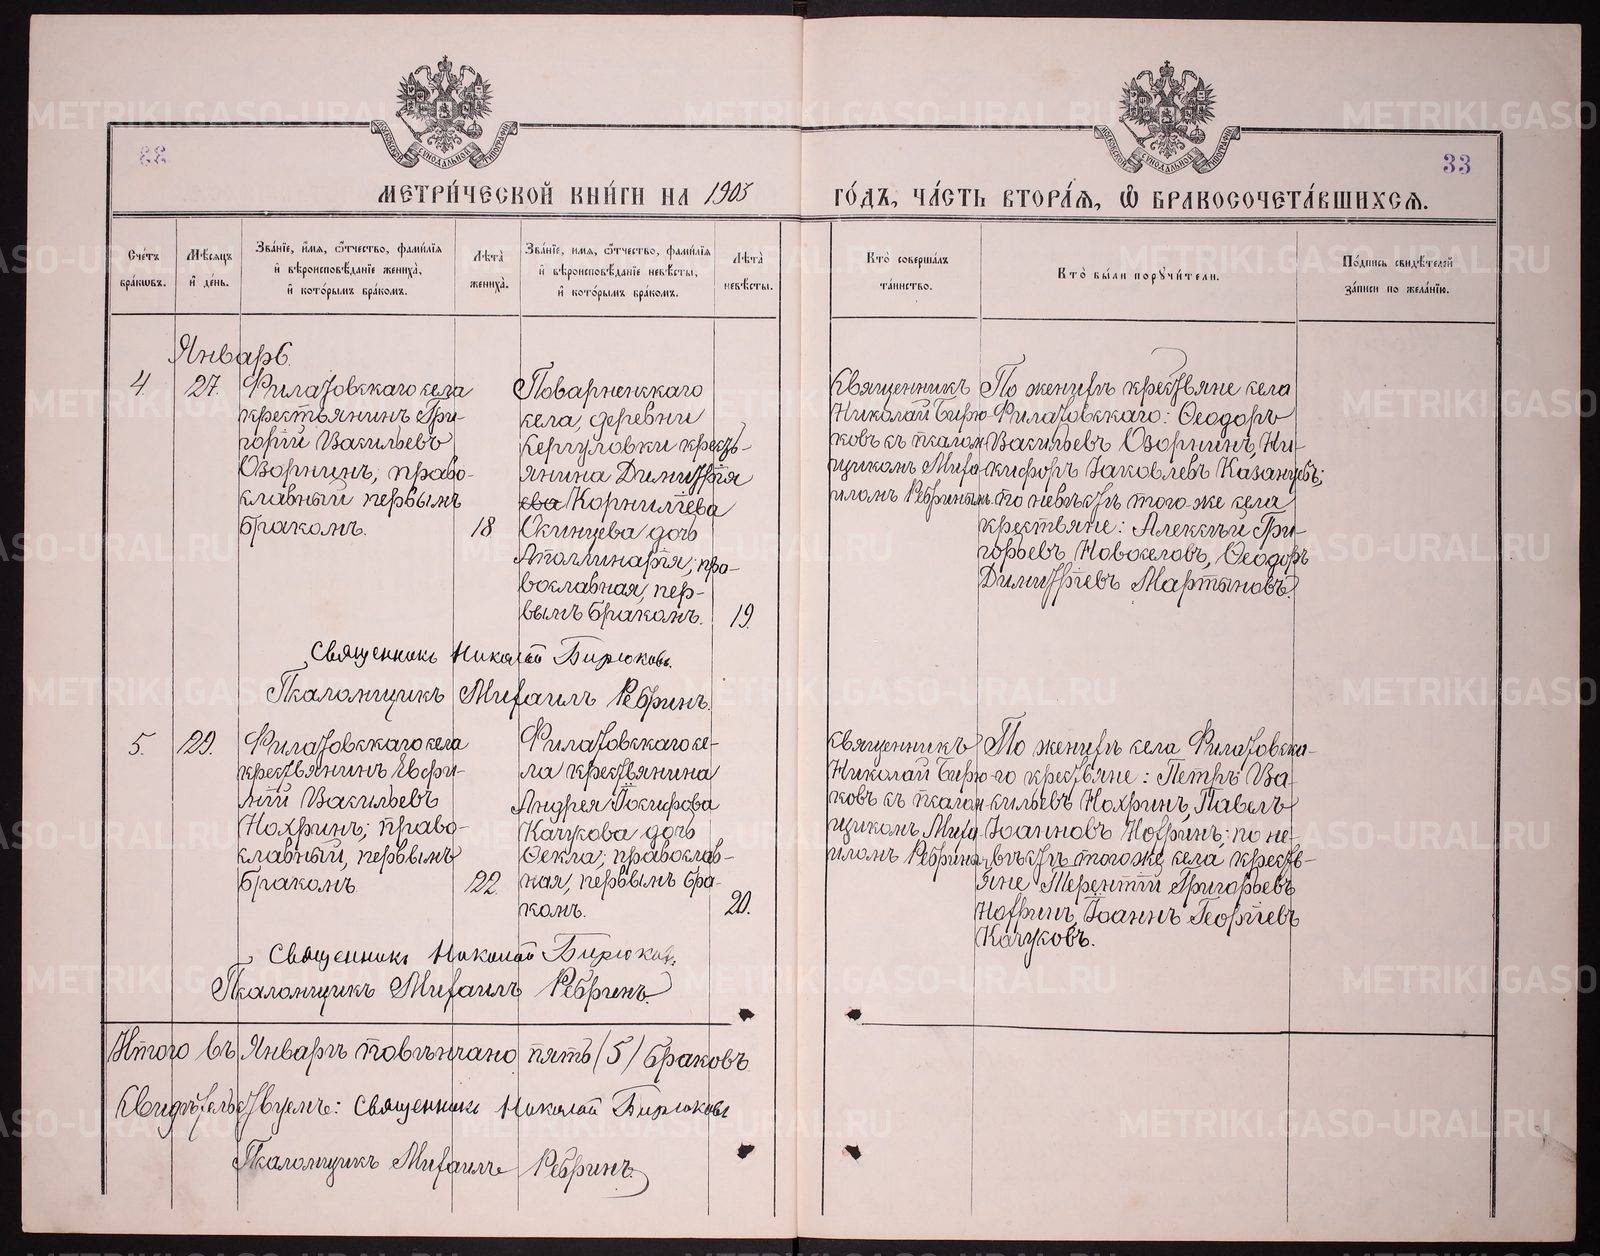 33
МЕТРИ́ЧЕСКОЙ КНИ́ГИ НА 1905 ГО́ДЪ, ЧА́СТЬ ВТОРА́Я, Ѡ БРАКОСОЧЕТА́ВШИХСЯ.
Сче́тъ бра́ковъ.
Мѣ́сяцъ и де́нь.
Зва́нїе, и́мя, ѻ҆́тчество, фами́лїя и҆ вѣроисповѣ́данїе жениха̀, и҆ кото́рымъ бра́комъ.
Лѣта̀ жениха̀.
Зва́нїе, имя, ѻ҆́тчество, фами́лїя и҆ вѣроисповѣ́данїе невѣ́сты, и҆ кото́рымъ бра́комъ.
Лѣта̀ невѣ́сты.
Кто̀ соверша́лъ та́инство.
Кто̀ бы́ли порꙋчи́тели.
По́дпись свидѣ́телей за́писи по жела́нїю.
Январь
4.
27.
Филатовскаго села
крестьянинъ Гри-
горій Васильевъ
Озорнинъ, право-
славный первымъ
бракомъ.
18
Поварненскаго
села, деревни
Кергуловки кресть-
янина Димитрія
Корниліева
Скинцева дочь
Аполлинарія, пра-
вославная, пер-
вымъ бракомъ.
19.
Священникъ
Николай Бирю-
ковъ съ псалом-
щикомъ Миха-
иломъ Ребринымъ.
По женихѣ крестьяне села
Филатовскаго: Ѳеодоръ
Васильевъ Озорнинъ, Ни-
кифоръ Іаковлевъ Казанцевъ;
по невѣстѣ того-же села
крестьяне: Алексѣй Гри-
горьевъ Новоселовъ, Ѳеодоръ
Димитріевъ Мартыновъ.
Священникъ Николай Бирюковъ.
Псаломщикъ Михаилъ Ребринъ.
5.
29.
Филатовскаго села
крестьянинъ Евфи-
мій Васильевъ
Нохринъ, право-
славный, первымъ
бракомъ
22
Филатовскаго се-
ла крестьянина
Андрея Іосифова
Качусова дочь
Ѳекла, православ-
ная, первымъ бра-
комъ.
20.
Священникъ
Николай Бирю-
ковъ съ псалом-
щикомъ Миха
иломъ Ребринымъ
По женихѣ села Филатовска-
го крестьяне: Петръ Ва-
сильевъ Нохринъ, Павелъ
Іоанновъ Нохринъ; по не-
вѣстѣ того же села кресть-
яне Терентій Григорьевъ
Нохринъ, Іоаннъ Георгіевъ
Качусовъ.
Священникъ Николай Бирюковъ.
Псаломщикъ Михаилъ Ребринъ.
Итого въ Январѣ повѣнчано пять (5) браковъ
Свидѣтельствуемъ: Священникъ Николай Бирюковъ
Псаломщикъ Михаилъ Ребринъ.
METRIKI.GASO-URAL.RU